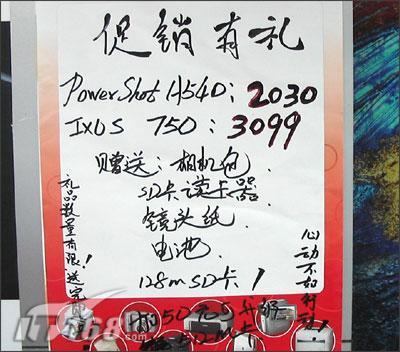 促销有礼
PowerShot A540: 2030
IXUS 750: 3099
赠送: 相机包
SD卡 读卡器
镜头纸
电池
128m SD卡!
礼品数量有限!送完
心动不如行动!
加50元升级
IT168.com